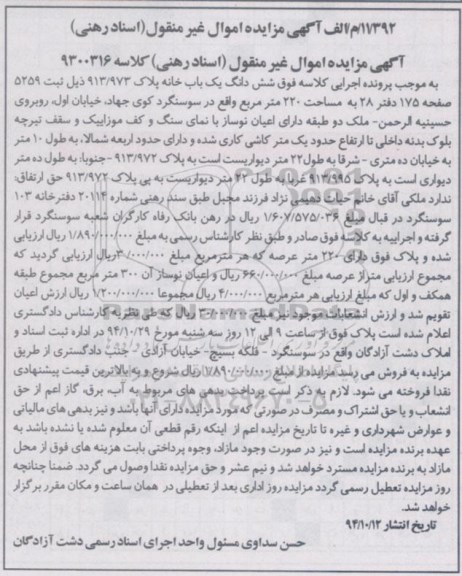 ۱۱۷۳۹۲/م/الف آگهی مزایده اموال غیر منقول (اسناد رهنی)
آگهی مزایده اموال غیر منقول (اسناد رهنی) کلاسه ۹۳۰۰۳۱۶
به موجب پرونده اجرایی کلاسه فوق شش دانگ یک باب خانه پلاک ۹۱۳/۹۷۳ ذیل ثبت ۵۲۵۹
صفحه ۱۷۵ دفتر ۲۸ به مساحت ۲۲۰ متر مربع واقع در سوسنگرد کوی جهاد، خیابان اول، روبروی
حسینیه الرحمن- ملک دو طبقه دارای اعیان نوساز با نمای سنگ و کف موزاییک و سقف تیرچه
بلوک بدنه داخلی تا ارتفاع حدود یک متر کاشی کاری شده و دارای حدود اربعه شمالا، به طول ۱۰ متر
به خیابان ده متری - شرقا به طول ۲۲ متر دیواریست است به پلاک ۹۱۳/۹۷۲ -جنوبا: به طول ده متر
دیواری است به پلاک ۹۱۳/۹۹۵ غربا به طول ۲۲ متر دیواریست به پی پلاک ۹۱۳/۹۷۲ حق ارتفاق:
ندارد ملکی آقای خانم حیات دهیمی نژاد فرزند مجبل طبق سند رهنی شماره ۲۰۱۱۴ دفترخانه ۱۰۳
سوسنگرد در قبال مبلغ ۱/۶۰۷/۵۷۵/۰۳۶ ریال در رهن بانک رفاه کارگران شعبه سوسنگرد قرار
گرفته و اجراییه به کلاسه فوق صادر و طبق نظر کارشناس رسمی به مبلغ ۱/۸۹۰/۰۰۰/۰۰۰ ریال ارزیابی
شده و پلاک فوق دارای ۲۲۰ متر عرصه که هر مترمربع مبلغ ۳/۰۰۰/۰۰۰ ریال ارزیابی گردید که
مجموع ارزیابی متراژ عرصه مبلغ ۶۶۰/۰۰۰/۰۰۰ ریال و اعیان نوساز آن ۳۰۰ متر مربع مجموع طبقه
همکف و اول که مبلغ ارزیابی هر مترمربع ۴/۰۰۰/۰۰۰ ریال مجموعا ۱/۲۰۰/۰۰۰/۰۰۰ ریال ارزش اعیان
تقویم شد و ارزش انشعابات موجود نیز مبلغ ۳۰/۰۰۰/۰۰۰ ریال که طی نظریه کارشناس دادگستری
اعلام شده است پلاک فوق از ساعت ۹ الی ۱۲ روز سه شنبه مورخ ۹۴/۱۰/۲۹ در اداره ثبت اسناد و
املاک دشت آزادگان واقع در سوسنگرد - فلکه بسیج- خیابان آزادی - جنب دادگستری از طریق
مزایده به فروش می رسد مزایده از مبلغ ۱/۸۹۰/۰۰۰/۰۰۰ ریال شروع و به بالاترین قیمت پیشنهادی
نقدا فروخته می شود. لازم به ذکر است پرداخت بدهی های مربوط به آب، برق، گاز اعم از حق
انشعاب و یا حق اشتراک و مصرف در صورتی که مورد مزایده دارای آنها باشد و نیز بدهی های مالیاتی
و عوارض شهرداری و غیره تا تاریخ مزایده اعم از اینکه رقم قطعی آن معلوم شده یا نشده باشد به
عهده برنده مزایده است و نیز در صورت وجود مازاد، وجوه پرداختی بابت هزینه های فوق از محل
مازاد به برنده مزایده مسترد خواهد شد و نیم عشر و حق مزایده نقدا وصول می گردد. ضمنا چنانچه
روز مزایده تعطیل رسمی گردد مزایده روز اداری بعد از تعطیلی در همان ساعت و مکان مقرر برگزار
خواهد شد.
تاریخ انتشار ۹۴/۱۰/۱۲
حسن سداوی مسئول واحد اجرای اسناد رسمی دشت آزادگان